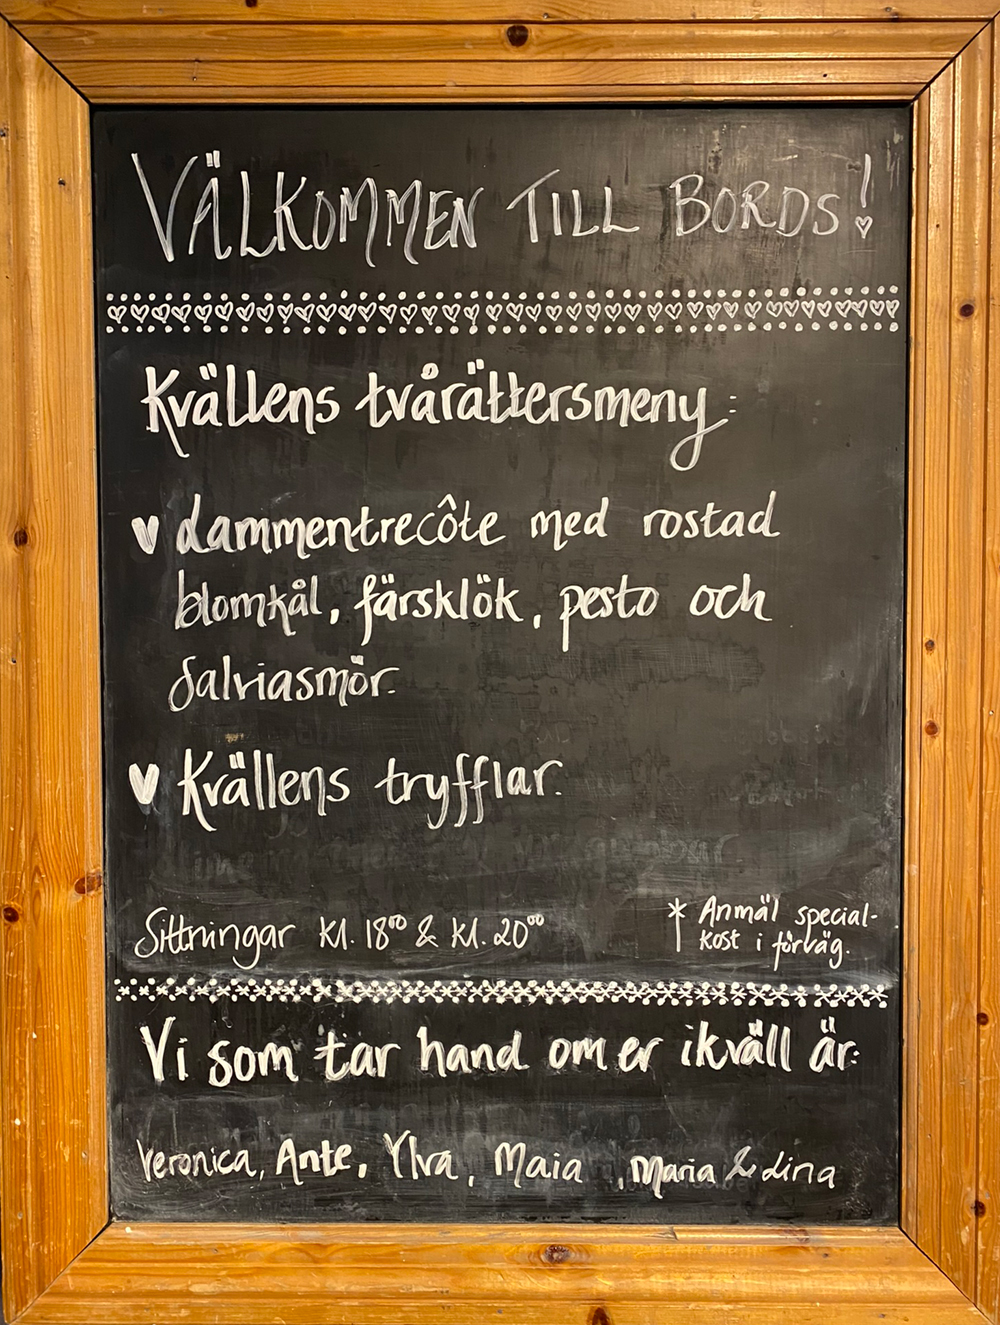 VÄLKOMMEN TILL BORDS!
Kvällens tvårättersmeny:
Lammentrecôte med rostad
blomkål, färsklök, pesto och
Salviasmör.
Kvällens tryfflar.
Sittningar Kl. 18⁰⁰ & Kl. 20⁰⁰
* Anmäl special-
kost i förväg.
Vi som tar hand om er ikväll är:
Veronica, Ante, Ylva, Maia, Maria & Lina